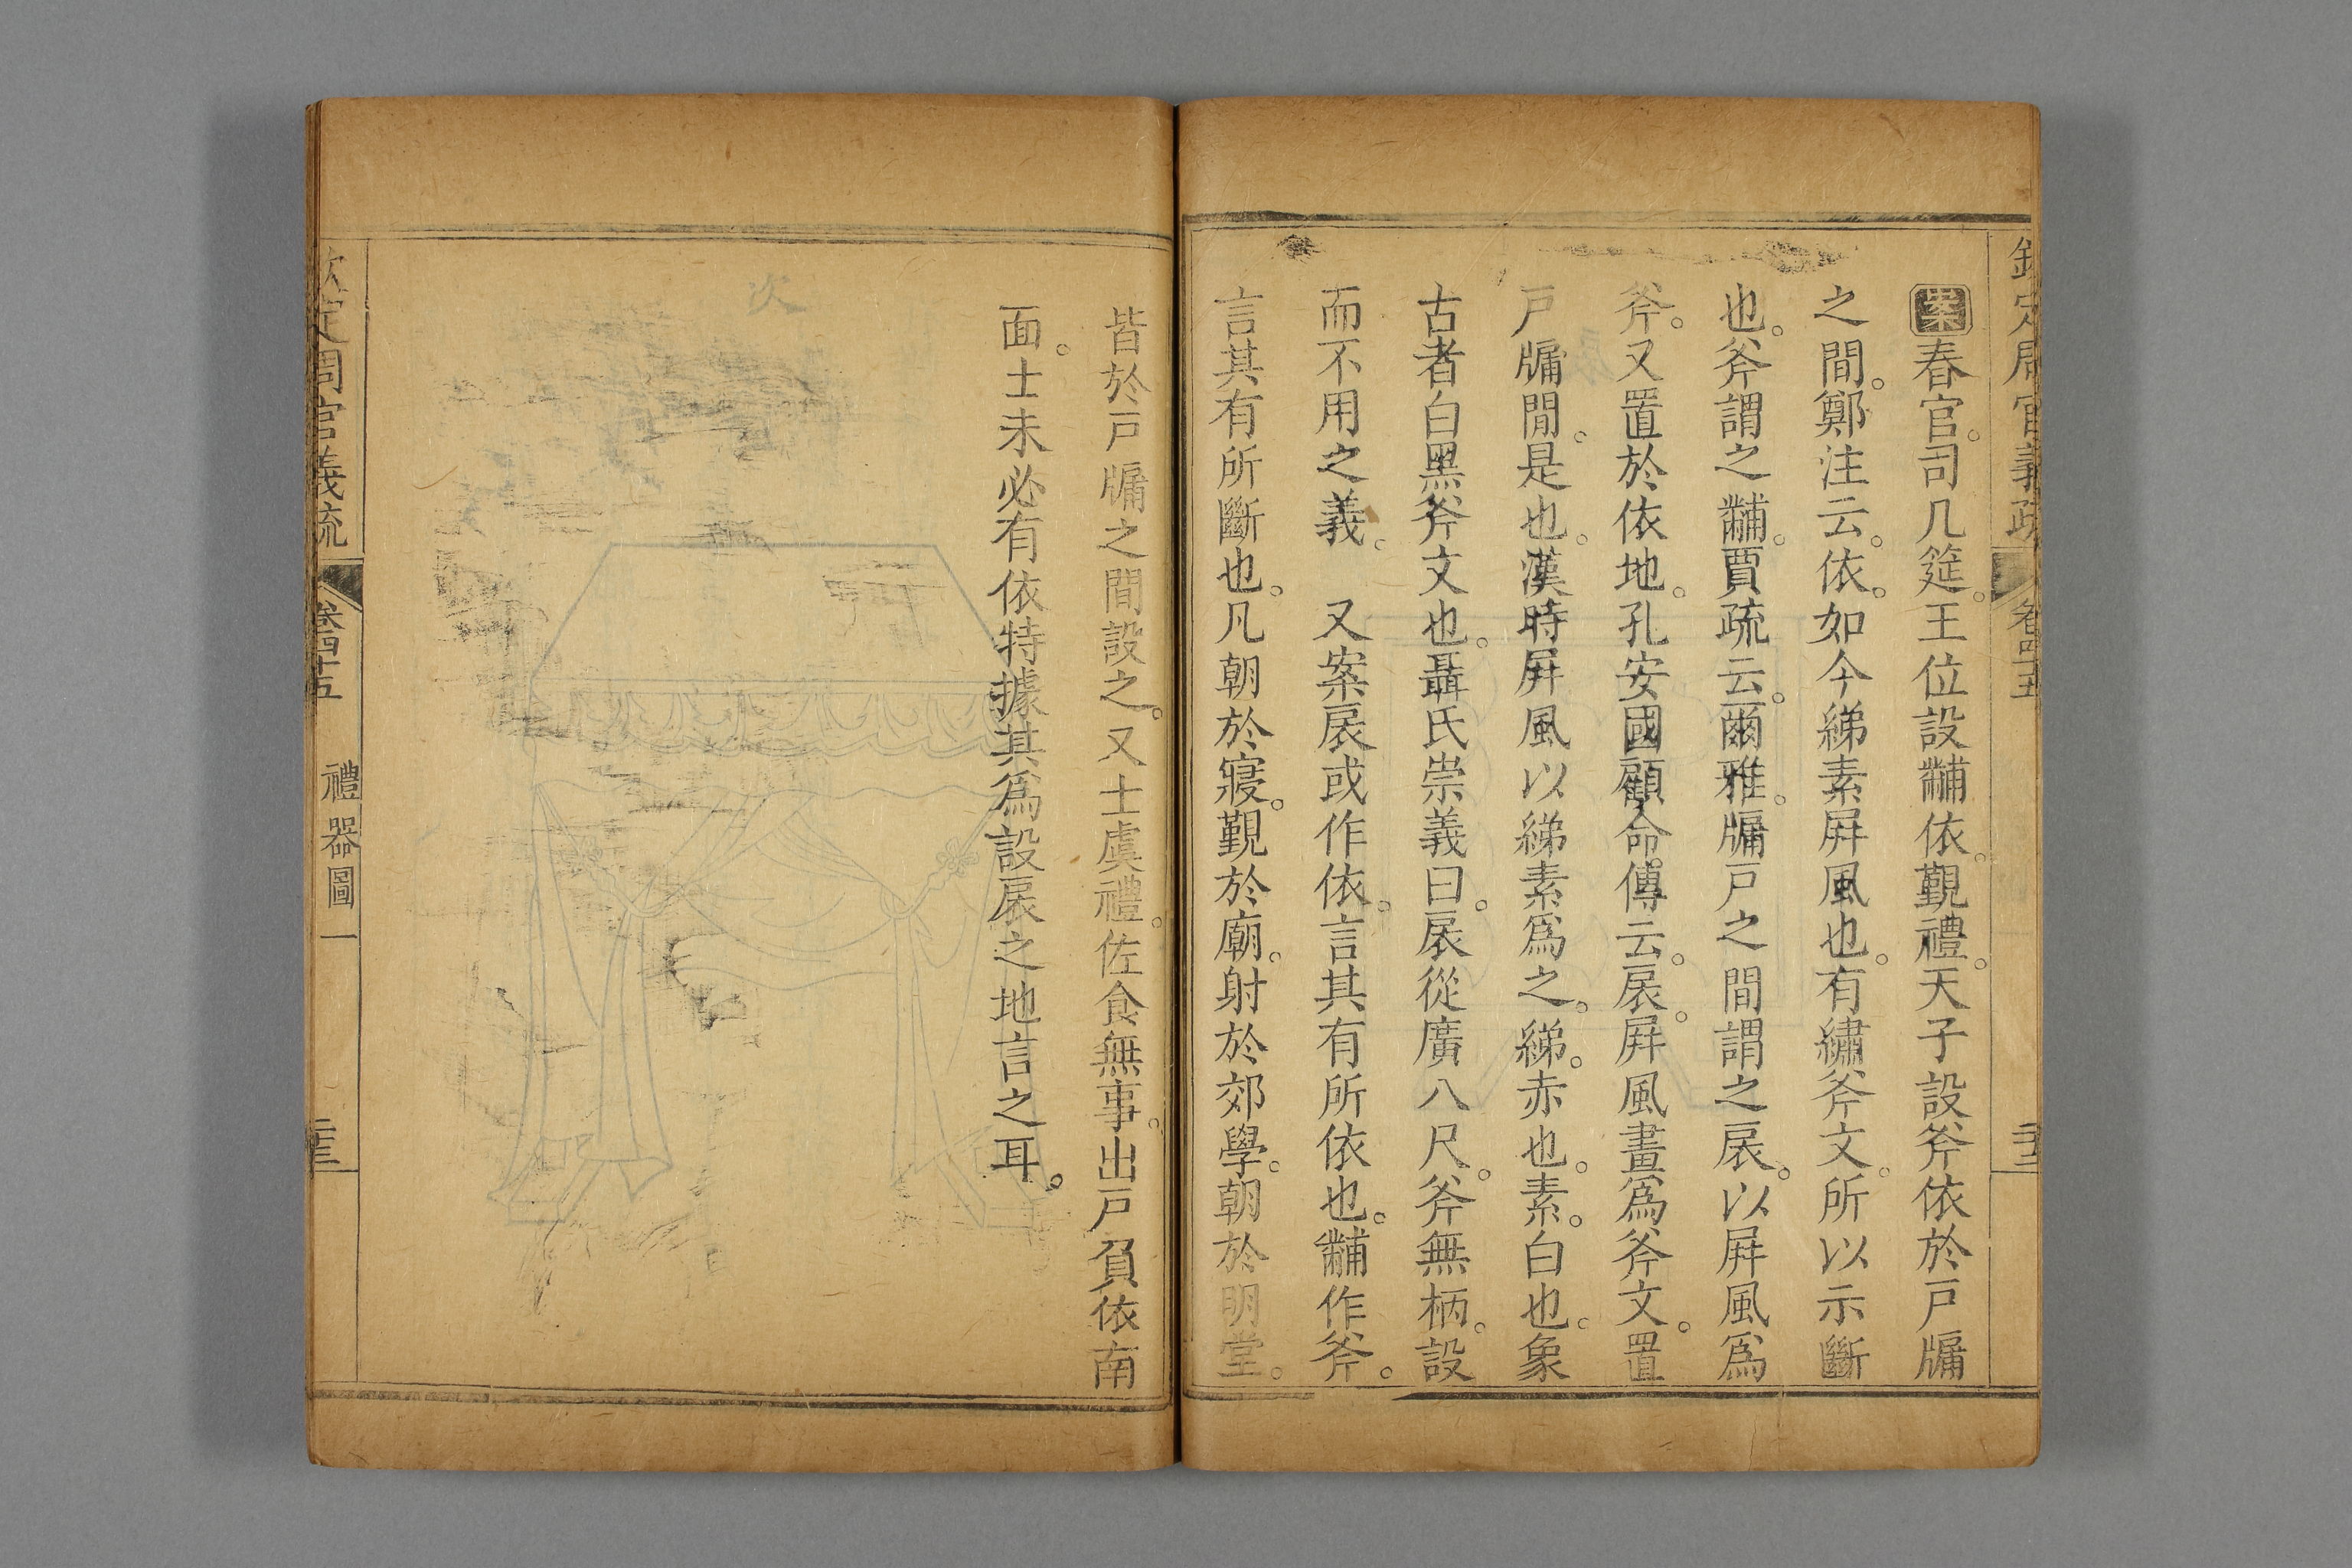 案春官。司几筵。王位設黼依。覲禮。天子設斧依於戸牖
之間。鄭注云。依。如今綈素屛風也。有繡斧文。所以示斷
也。斧謂之黼。賈疏云。爾雅。牖戸之間謂之扆。以屛風爲
斧。又置於依地。孔安國顧命傳云。扆。屛風畫爲斧文。置
戸牖間。是也。漢時屛風以綈素爲之。綈。赤也。素。白也。象
古者白黑斧文也。聶氏崇義曰。扆從廣八尺。斧無柄。設
而不用之義。　又案扆或作依。言其有所依也。黼作斧。
言其有所斷也。凡朝於寢。覲於廟。射於郊學。朝於明堂。
皆於戸牖之間設之。又士虞禮。佐食無事。出戸負依南
面。士未必有依。特據其爲設扆之地言之耳。
欽定周官義疏
卷四十五
禮器圖一